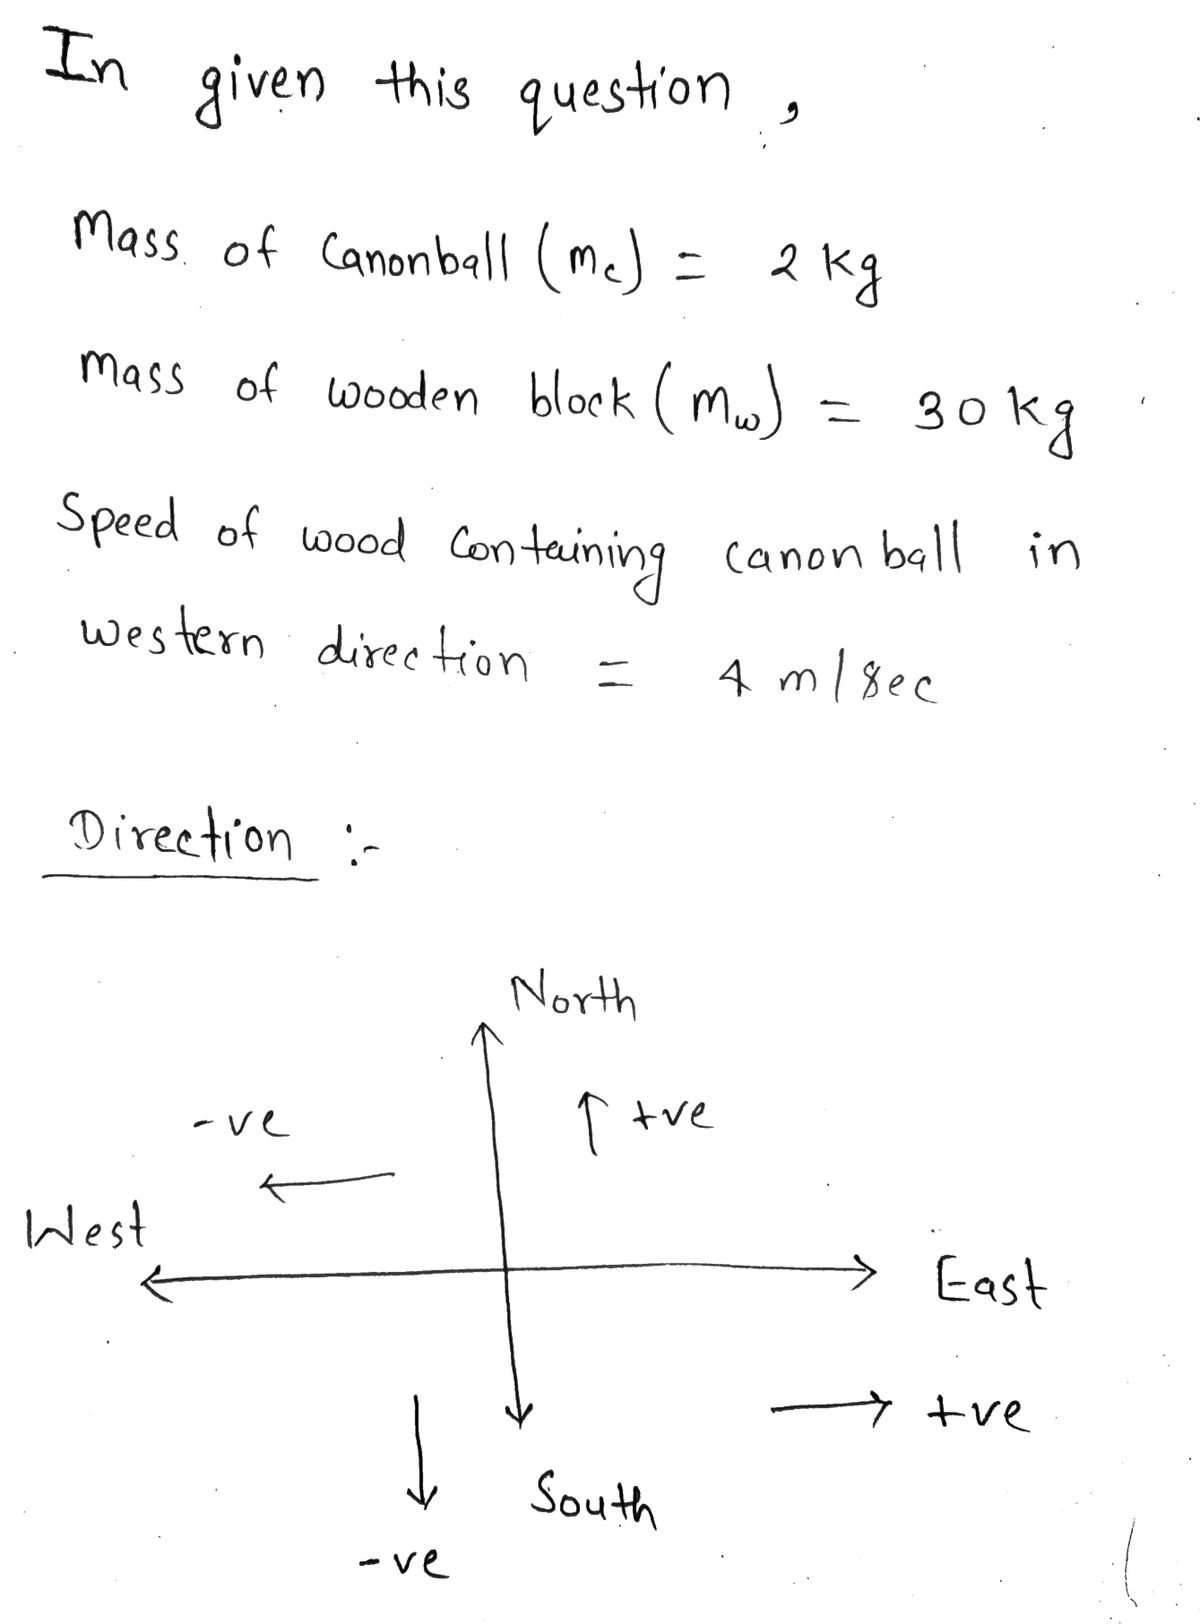 In given this question,
Mass of Canonball (mc) = 2 kg
Mass of wooden block (mw) = 30 kg
Speed of wood Containing canon ball in
western direction = 4 m/sec
Direction :-
North
-ve
↑ +ve
West
East
→ +ve
South
-ve